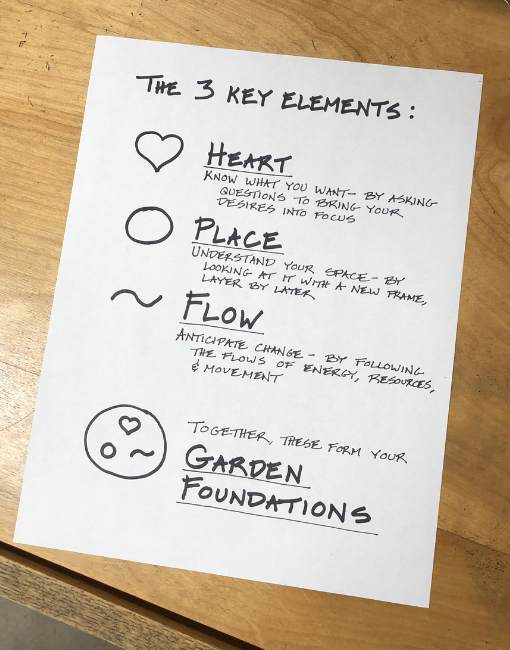 THE 3 KEY ELEMENTS:
HEART
KNOW WHAT YOU WANT – BY ASKING
QUESTIONS TO BRING YOUR
DESIRES INTO FOCUS
PLACE
UNDERSTAND YOUR SPACE – BY
LOOKING AT IT WITH A NEW FRAME,
LAYER BY LAYER
FLOW
ANTICIPATE CHANGE – BY FOLLOWING
THE FLOWS OF ENERGY, RESOURCES,
& MOVEMENT
TOGETHER, THESE FORM YOUR
GARDEN
FOUNDATIONS